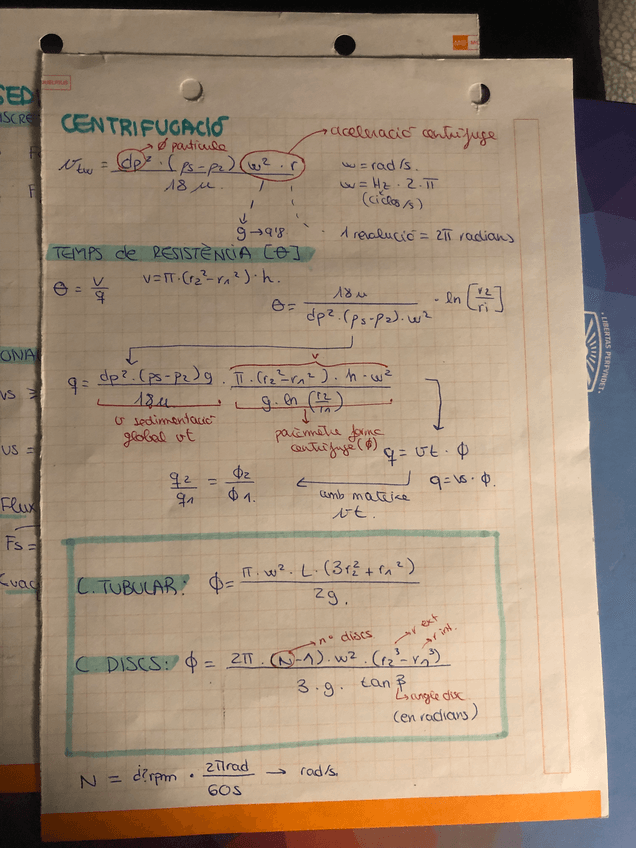 CENTRIFUGACIÓ
ø partícula
aceleració centrífuga
v_tw = dp² · (ρs-ρ2) w² · r / 18 μ
w = rad/s.
w = Hz · 2 · π
(cicles/s)
g → 9'8
1 revolució = 2π radians
TEMPS de RESISTÈNCIA [θ]
θ = V / q
V = π · (r2² - r1²) · h.
θ = 18 μ / dp² · (ρs-ρ2) · w² · ln [r2 / ri]
q = dp² · (ρs-ρ2) g / 18 μ · π · (r2² - r1²) · h · w² / g · ln (r2 / r1)
v
v sedimentació
global vt
paràmetre forma
centrífuga (ϕ)
q = vt · ϕ
q = vs · ϕ.
q2 / q1 = ϕ2 / ϕ1.
amb mateixa
vt.
C. TUBULAR: ϕ = π · w² · L · (3r2² + r1²) / 2g.
nº discs
r ext
r int.
C DISCS: ϕ = 2π · (N-1) · w² · (r2³ - r1³) / 3 · g · tan β
angle disc
(en radians)
N = d? rpm · 2π rad / 60 s → rad/s.
SED
ISCRE
F
F
ONA
vs ≥
vs =
Flux
Fs =
LIBERTAS PERFVNDET